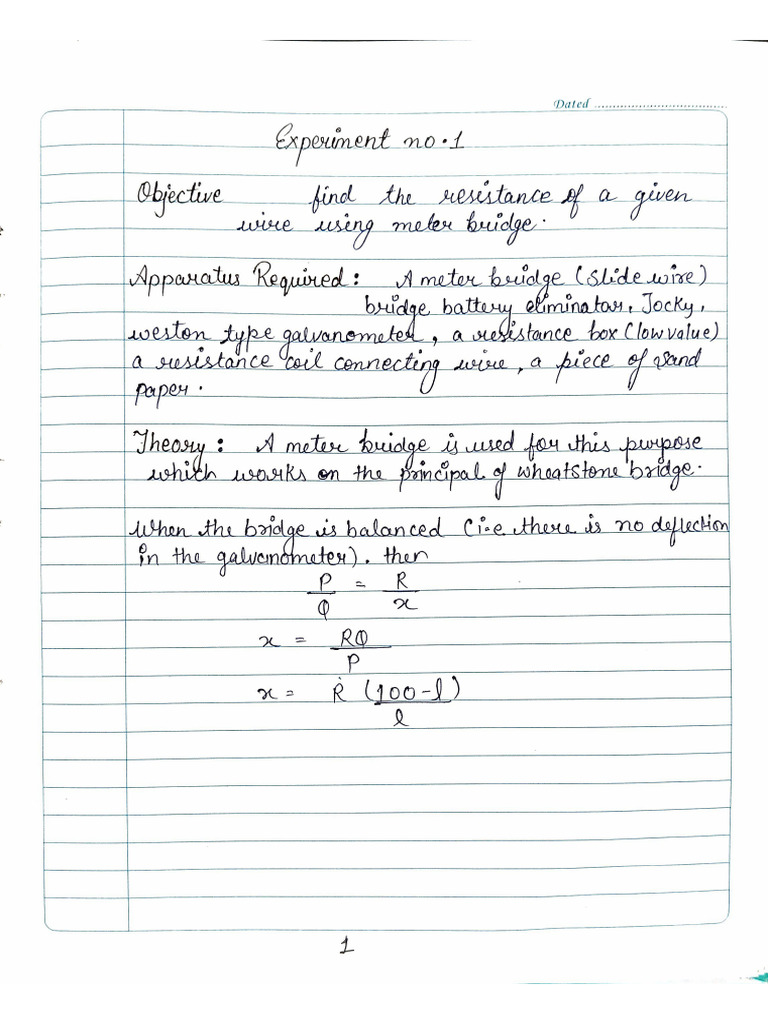 Dated
Experiment no.1
Objective find the resistance of a given
wire using meter bridge.
Apparatus Required: A meter bridge (slide wire)
bridge battery eliminator, Jocky,
weston type galvanometer, a resistance box (low value)
a resistance coil connecting wire, a piece of sand
paper.
Theory: A meter bridge is used for this purpose
which works on the principal of wheatstone bridge.
When the bridge is balanced (i.e. there is no deflection
in the galvanometer). then
P/Q = R/x
x = RQ/P
x = R (100-l)/l
1